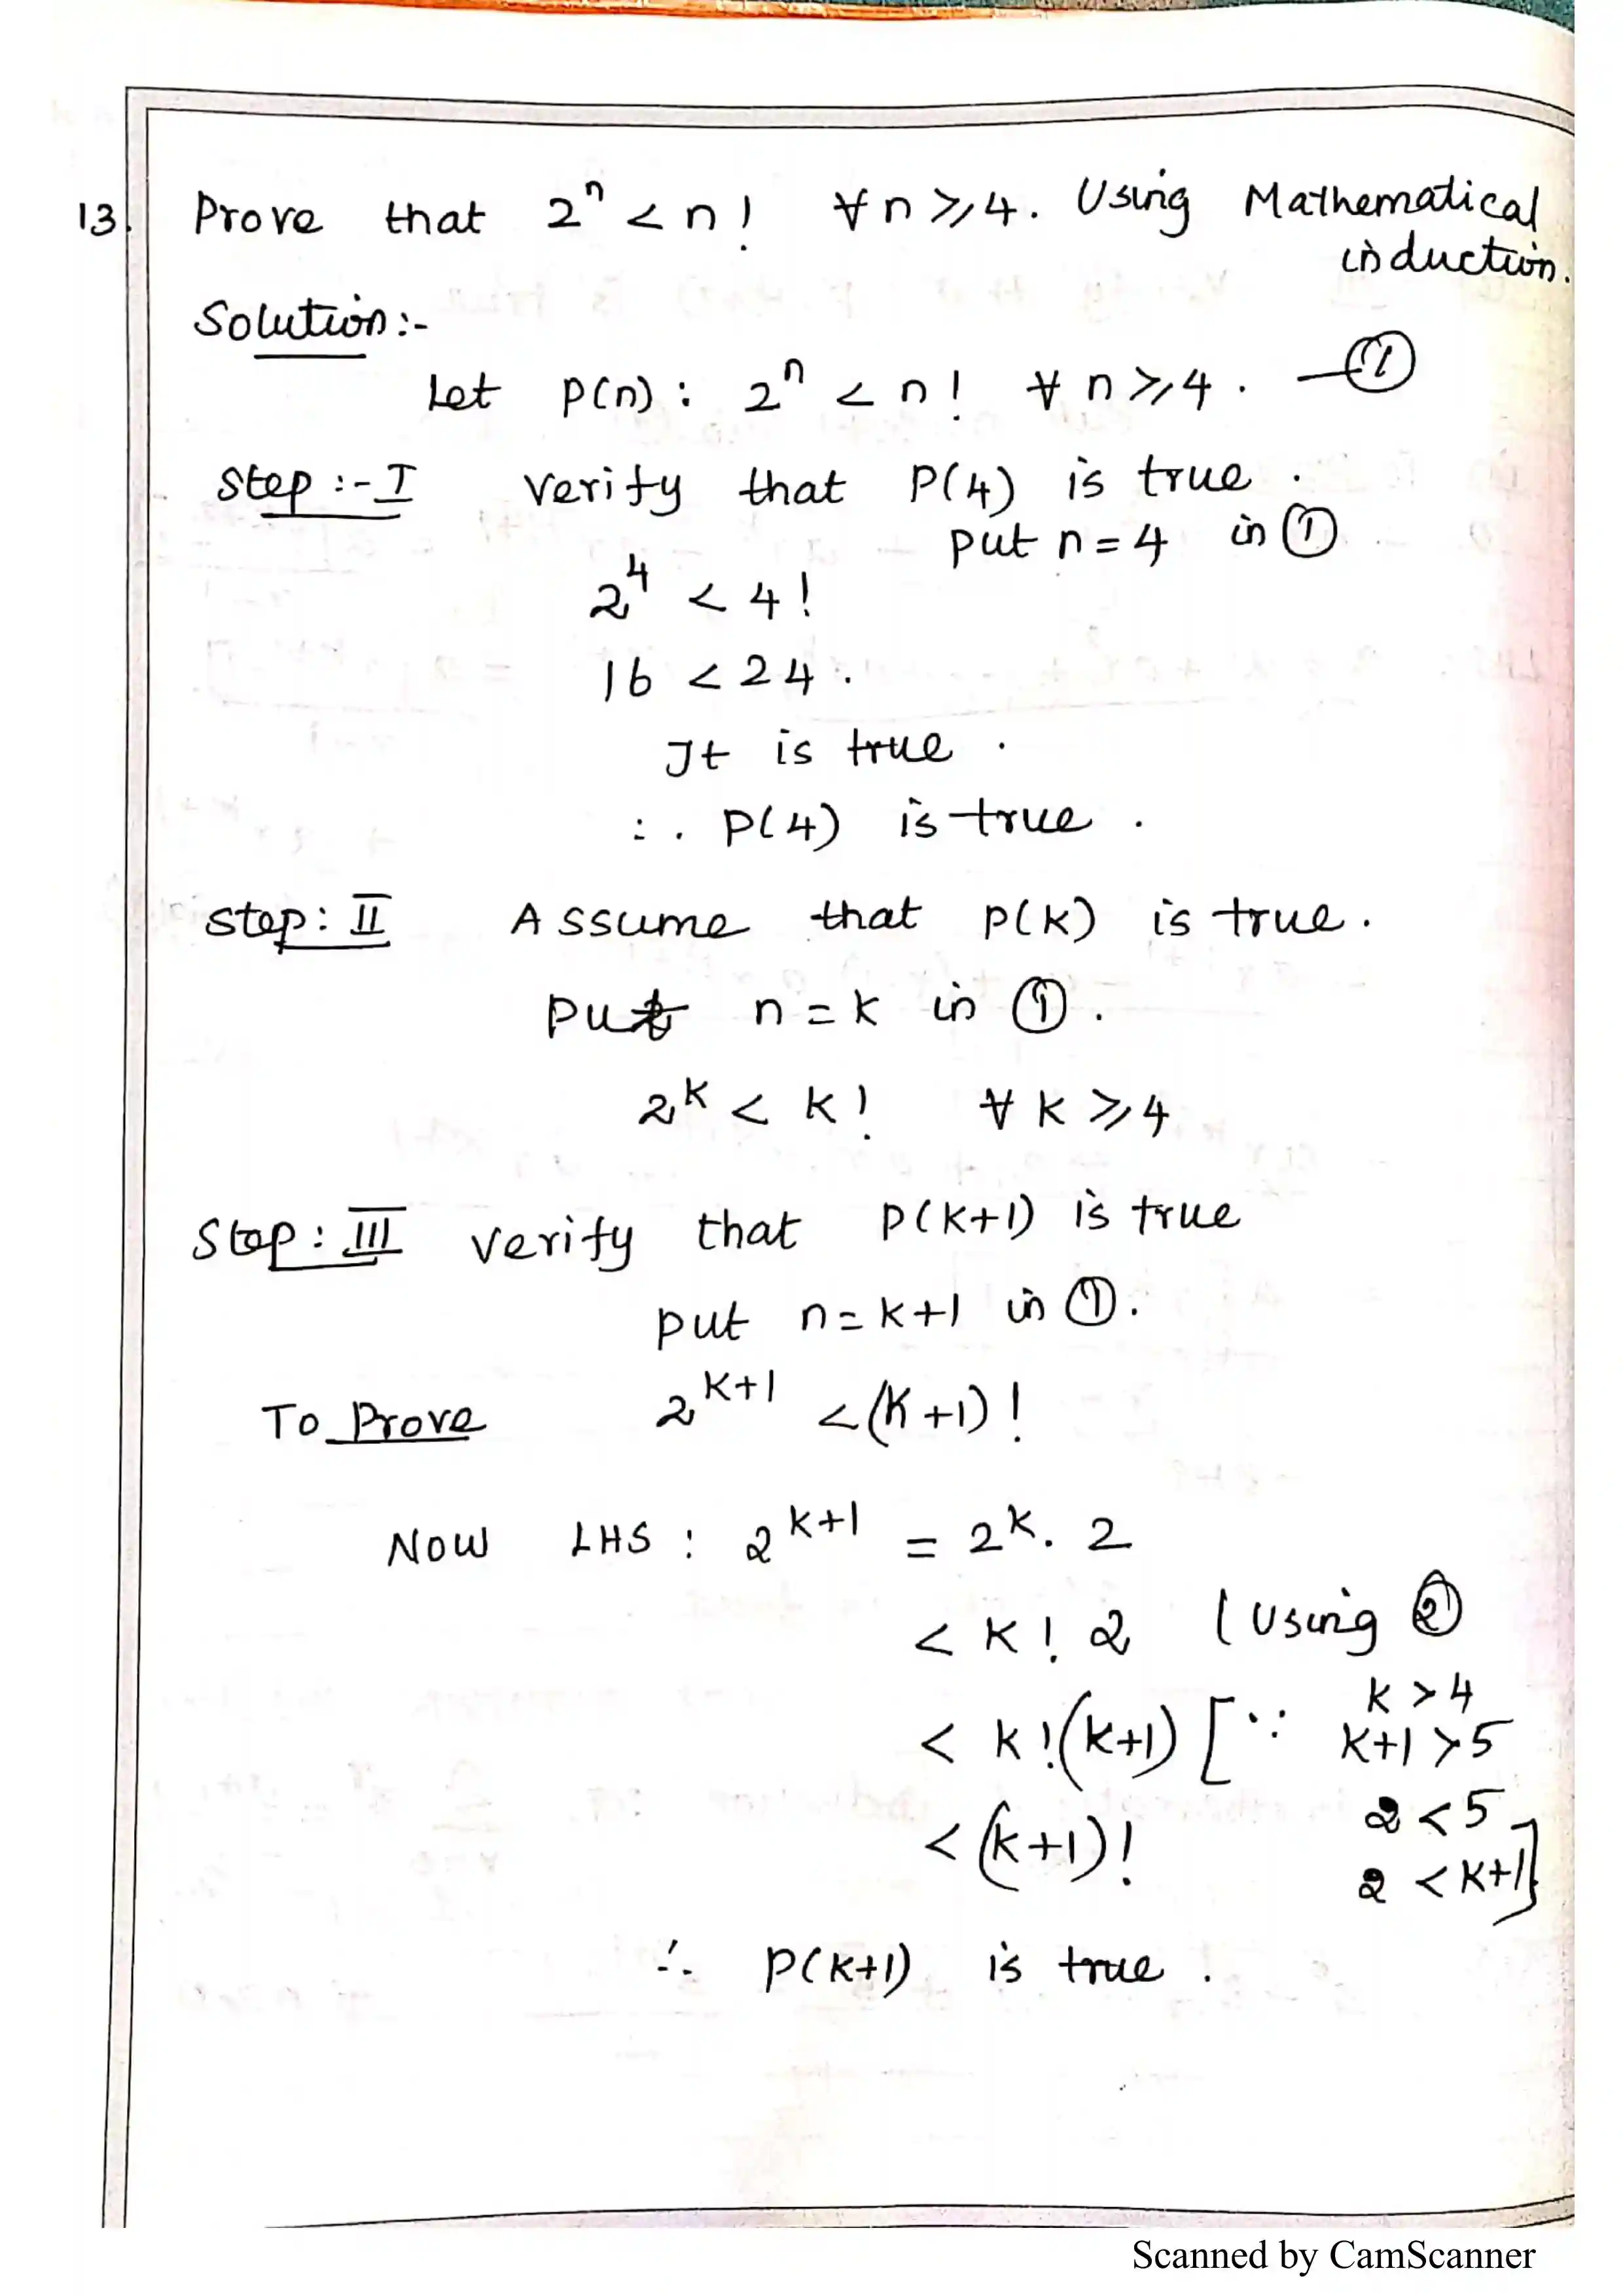 13. Prove that 2ⁿ < n! ∀ n ≥ 4. Using Mathematical
induction.
Solution:-
Let P(n): 2ⁿ < n! ∀ n ≥ 4. — ①
Step :- I Verify that P(4) is true.
put n = 4 in ①
2⁴ < 4!
16 < 24.
It is true.
∴ P(4) is true.
Step: II Assume that P(K) is true.
Put n = K in ①.
2ᴷ < K! ∀ K ≥ 4
Step: III Verify that P(K+1) is true
put n = K+1 in ①.
To Prove 2ᴷ⁺¹ < (K+1)!
Now LHS : 2ᴷ⁺¹ = 2ᴷ. 2
< K! 2 (Using ②
< K!(K+1) [∵ K > 4
K+1 > 5
2 < 5
< (K+1)!
2 < K+1]
∴ P(K+1) is true.
Scanned by CamScanner